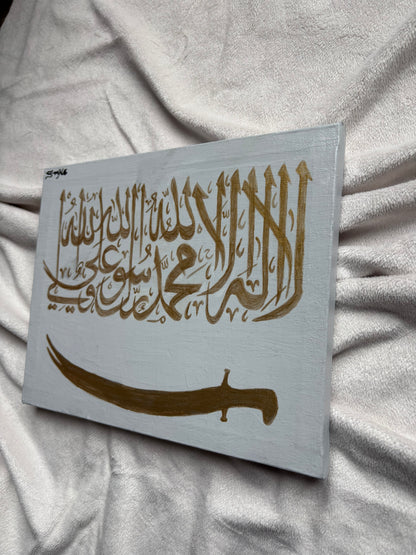 لا إله إلا الله محمد رسول الله علي ولي الله